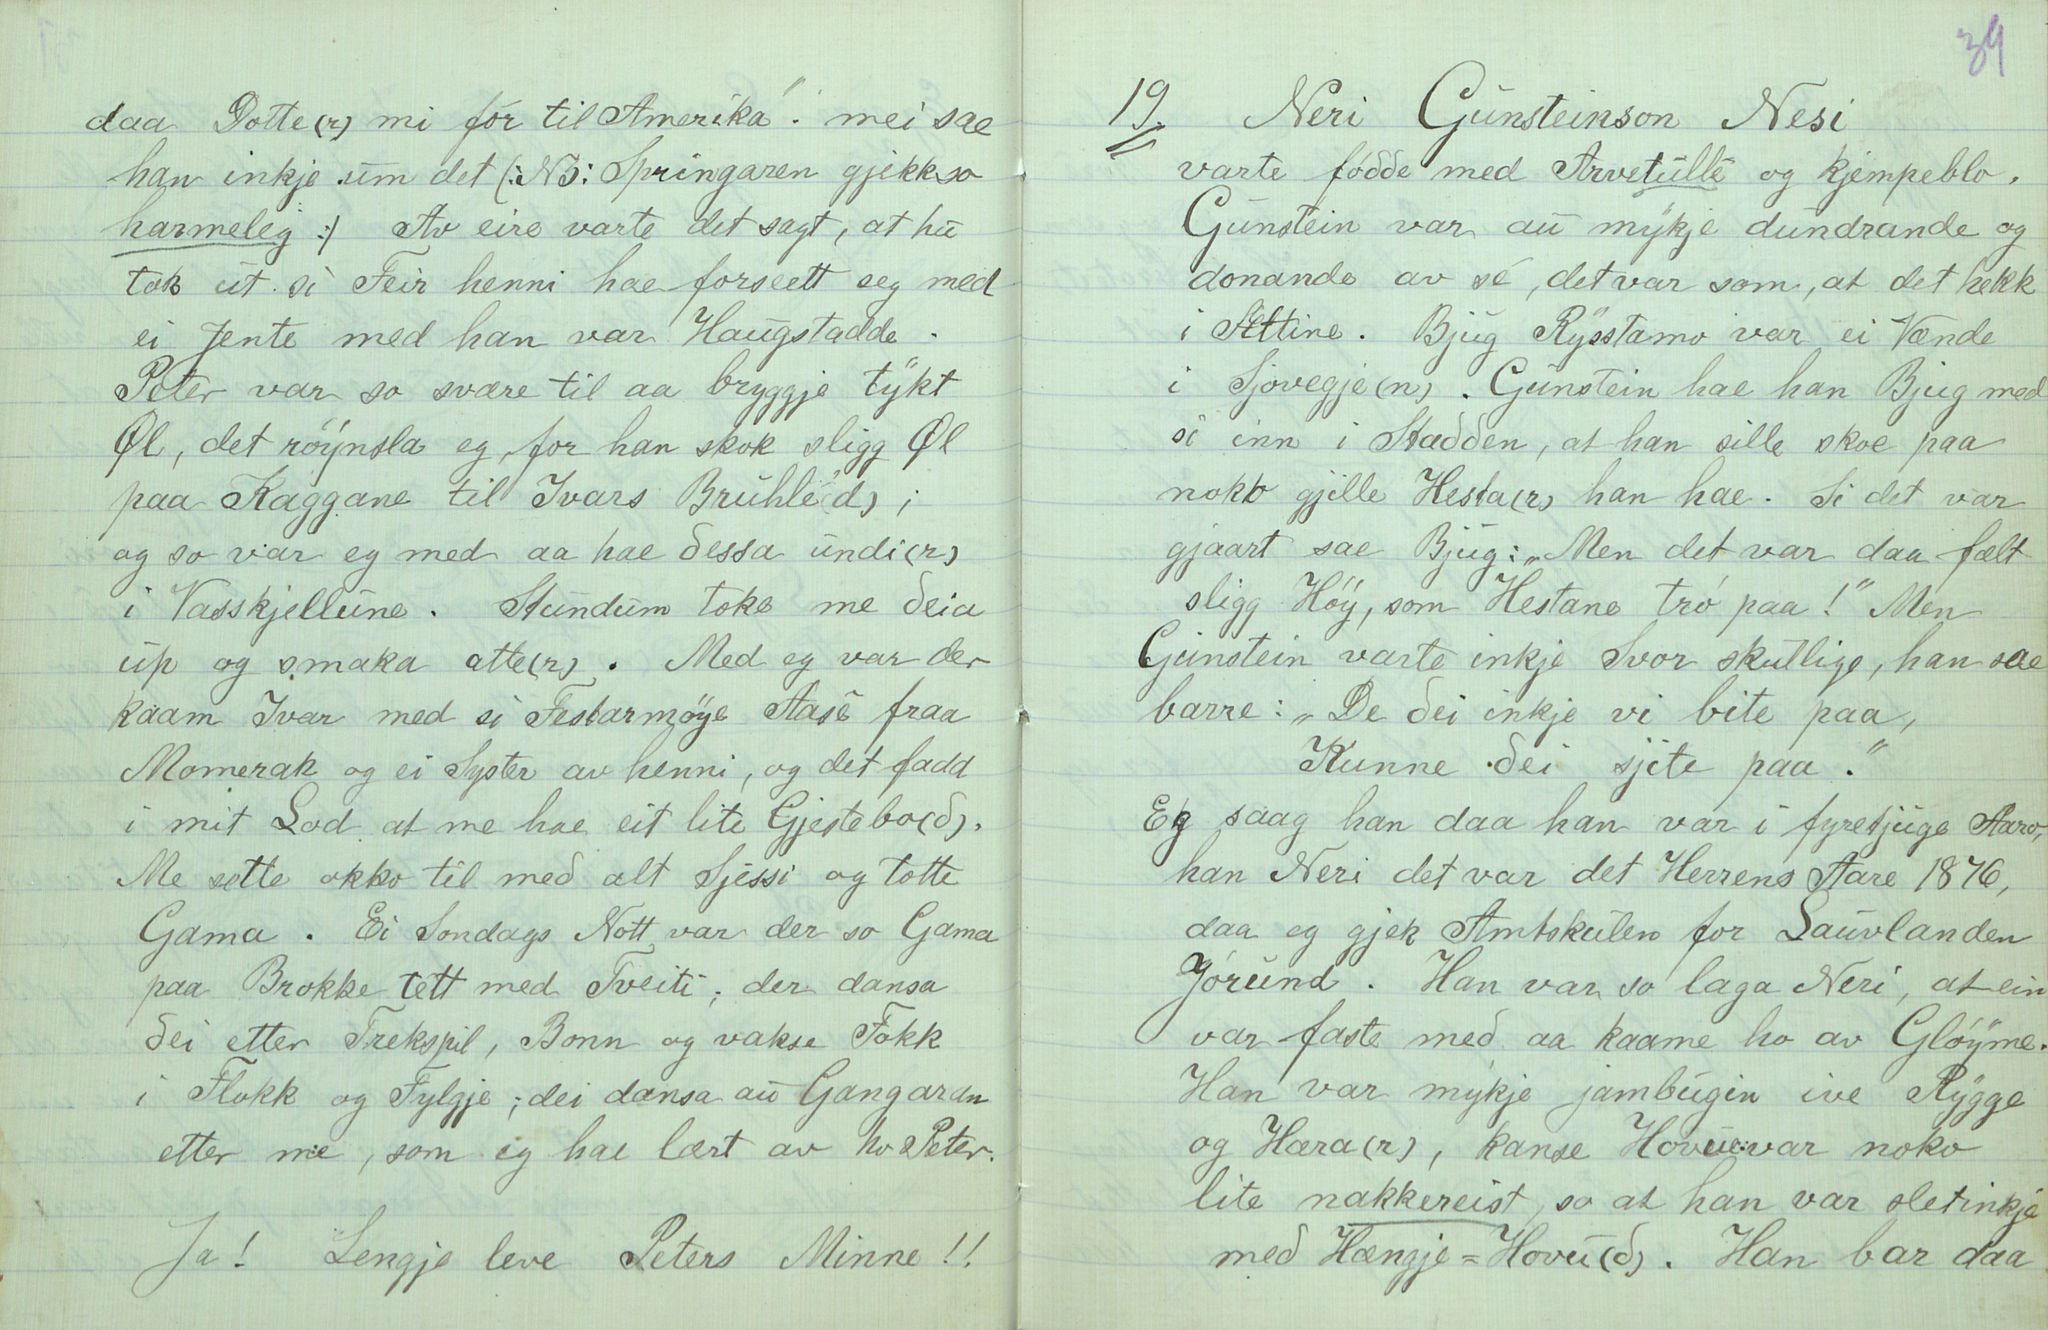 daa Dotte(r) mi för til Amerika". mei sae
han inkje um det (:NB: Springaren gjekk so
harmeleg :) Av eire varte det sagt, at hu
tok ut si Feir henni hae forseett seg med
ei Jente med han var Haugstadde.
Peter var so svære til aa bryggje tykt
Øl, det röynsla eg, for han skok sligg Øl
paa Kaggane til Ivars Bruhle(d);
og so var eg med aa hae dessa undi(r)
i Vasskjellune. Stundum toke me deia
up og smaka atte(r). Med eg var der
kaam Ivar med si Festarmöye Aase fraa
Momerak og ei Syster av henni, og det fadd
i mit Lod at me hae eit lite Gjestebo(d).
Me sette okko til med alt Sjessi og totte
Gama. Ei Sondags Nott var der so Gama
paa Brokke tett med Tveiti; der dansa
dei etter Trekspil, Bonn og vakse Fokk
i Flokk og Fylgje; dei dansa au Gangaran
etter me, som eg hae lært av ho Peter.
Ja! Lengje leve Peters Minne!!
39
19. Neri Gunsteinson Nesi
varte födde med Arvetulle og kjempeblo.
Gunstein var au mykje dundrande og
donande av sé, det var som, at det hekk
i Ættine. Bjug Rysstamo var ei Vænde
i Sjovegje(n). Gunstein hae han Bjug med
si inn i Stadden, at han sille skoe paa
noko gjille Hesta(r) han hae. Si det var
gjaart sae Bjug: „Men det var daa fælt
sligg Höy, som Hestane tro paa!" Men
Gunstein varte inkje Svor skullige, han sae
barre: „De dei inkje vi bite paa,
Kunne dei sjite paa."
Eg saag han daa han var i fyretjuge Aaro,
han Neri det var det Herrens Aare 1876,
daa eg gjek Amtskulen for Lauvlanden
Jörund. Han var so laga Neri, at ein
var faste med aa kaame ho av Glöyme.
Han var mykje jambugin ive Rygge
og Hæra(r), kanse Hovue var noko
lite nakkereist, so at han var sletinkje
med Hængje=Hovu(d). Han bar daa